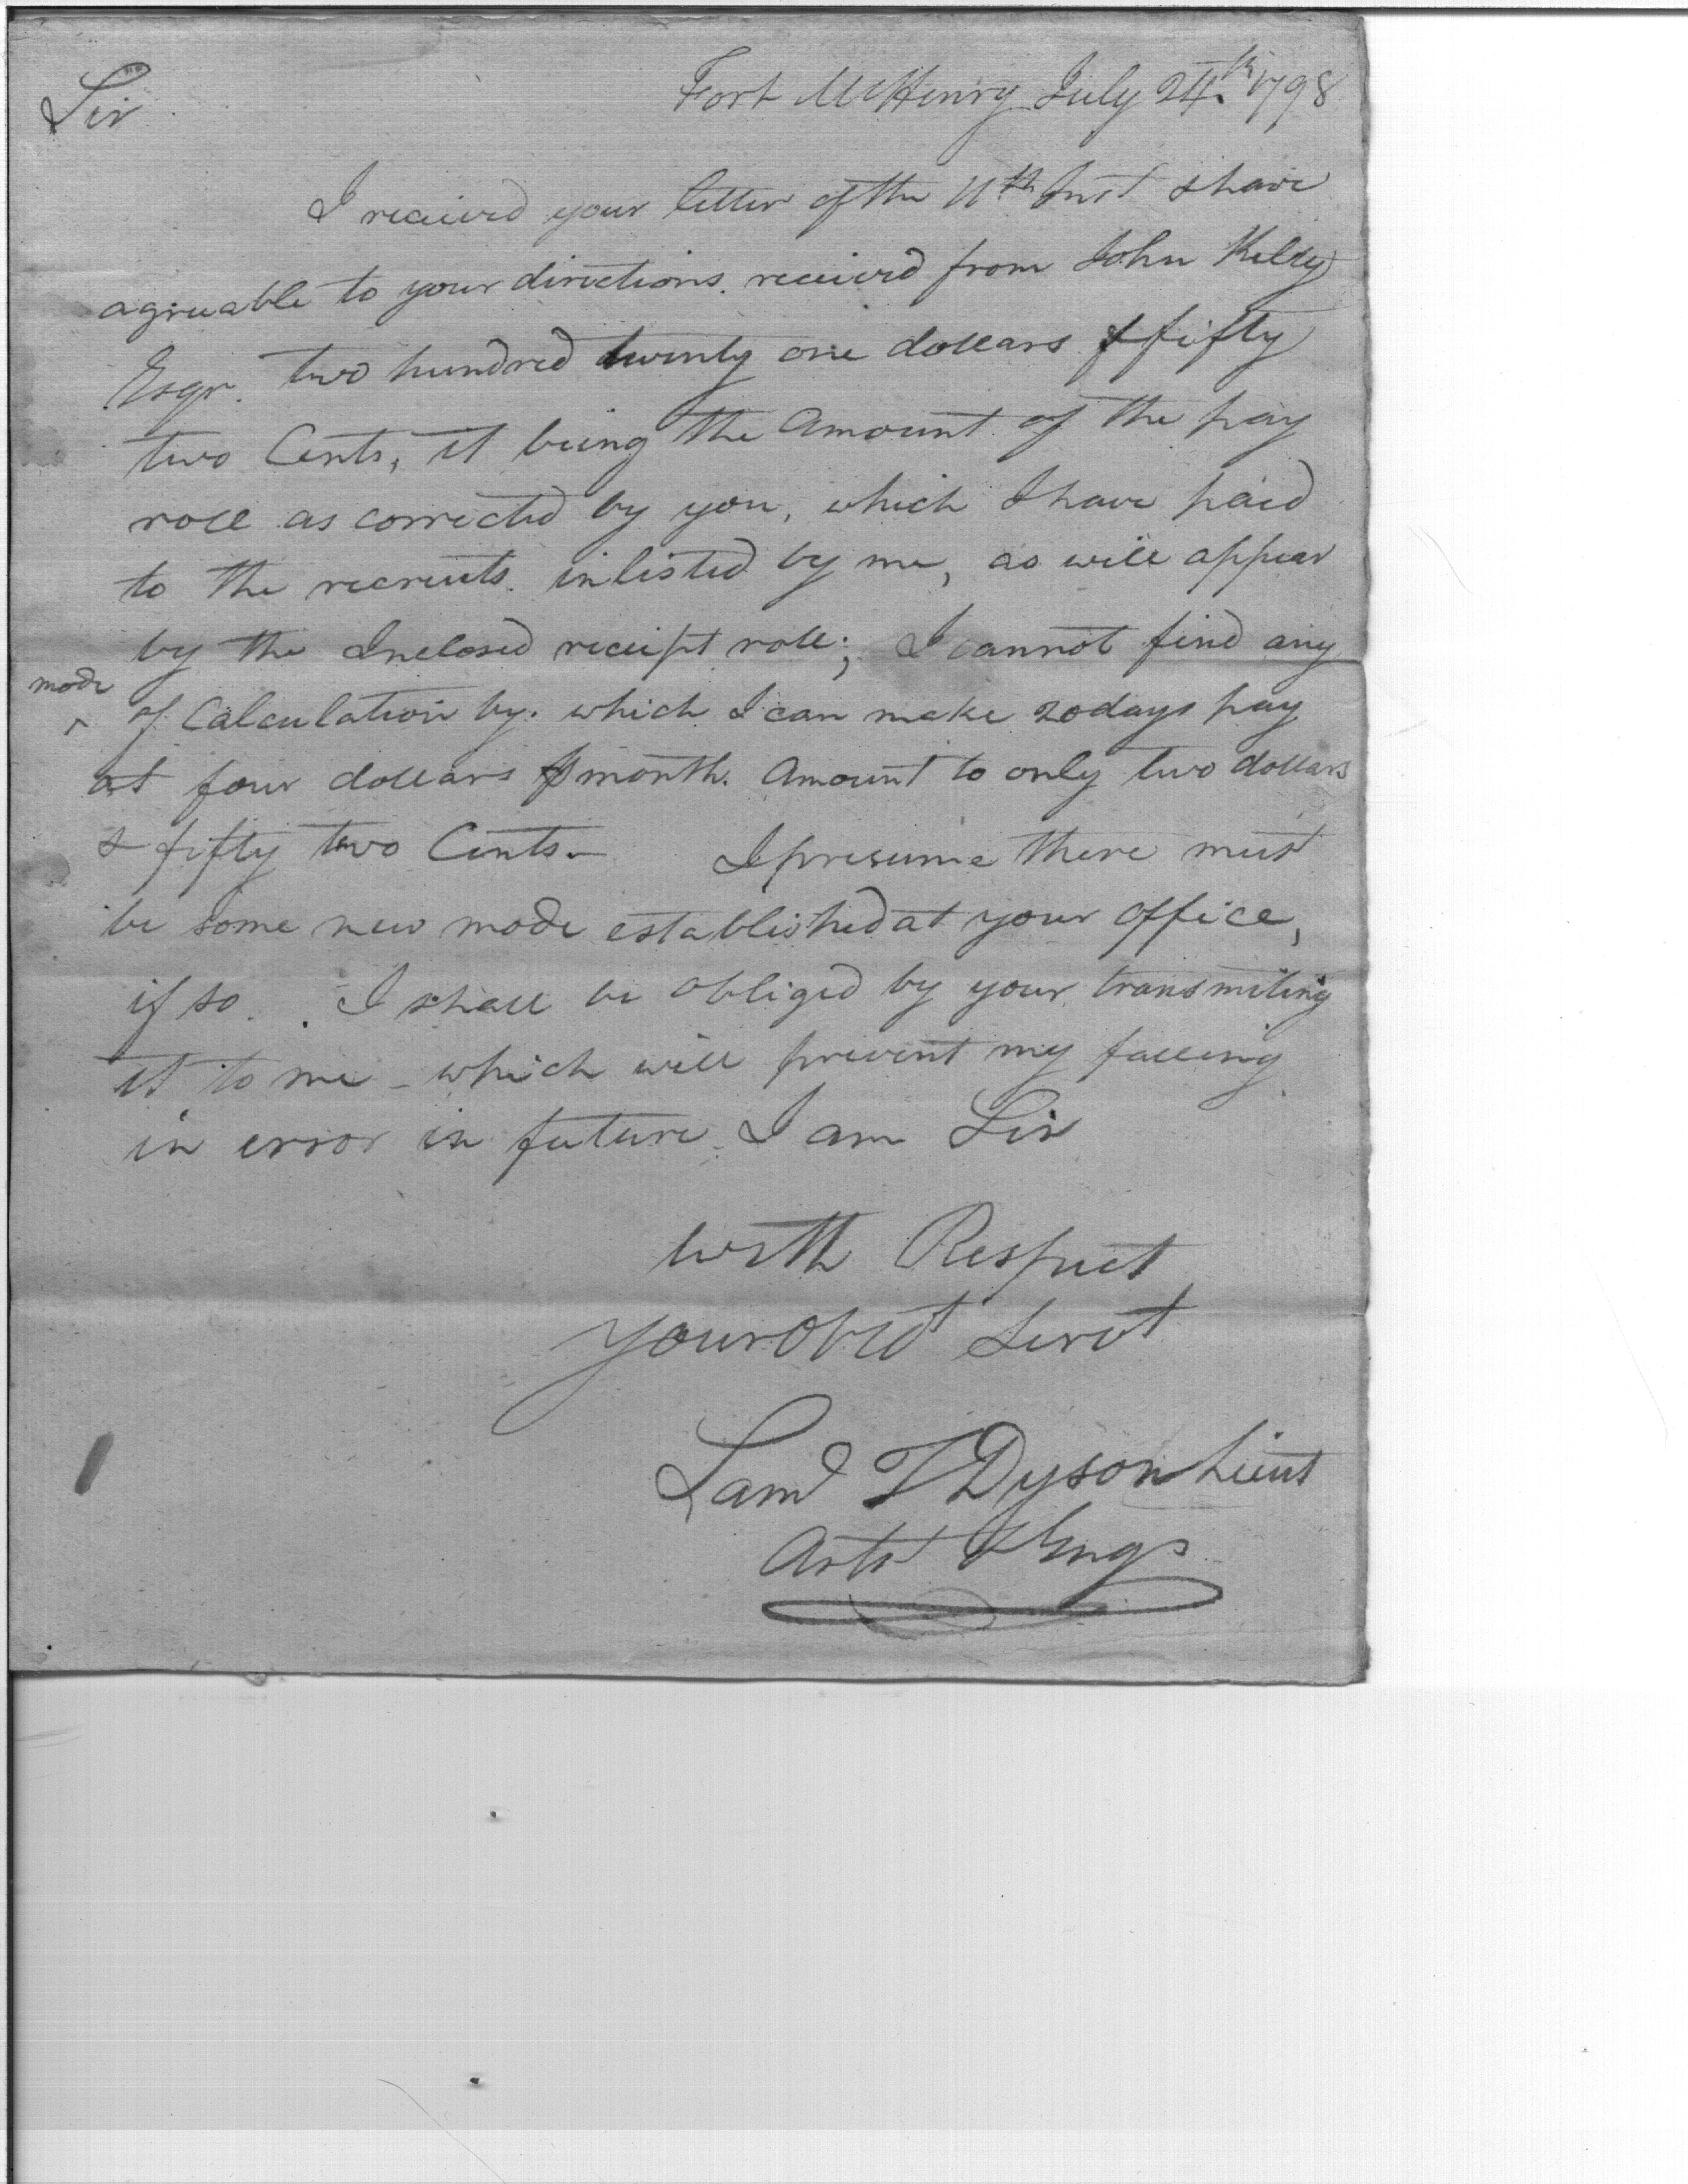 Fort McHenry July 24th 1798
Sir
I received your letter of the 11th Inst & have
agreeable to your directions. received from John Kilty
Esqr. two hundred twenty one dollars & fifty
two Cents, it being the Amount of the pay
roll as corrected by you, which I have paid
to the recruits. inlisted by me, as will appear
by the Inclosed receipt roll; I cannot find any
mode
^ of Calculation by. which I can make 20 days pay
at four dollars ⅌ month. Amount to only two dollars
& fifty two Cents— I presume there must
be some new mode established at your office,
if so. I shall be obliged by your transmiting
it to me – which will prevent my falling
in error in future. I am Sir
with Respect
your Obed Servt
Saml T Dyson Lieut
Arts & Engs